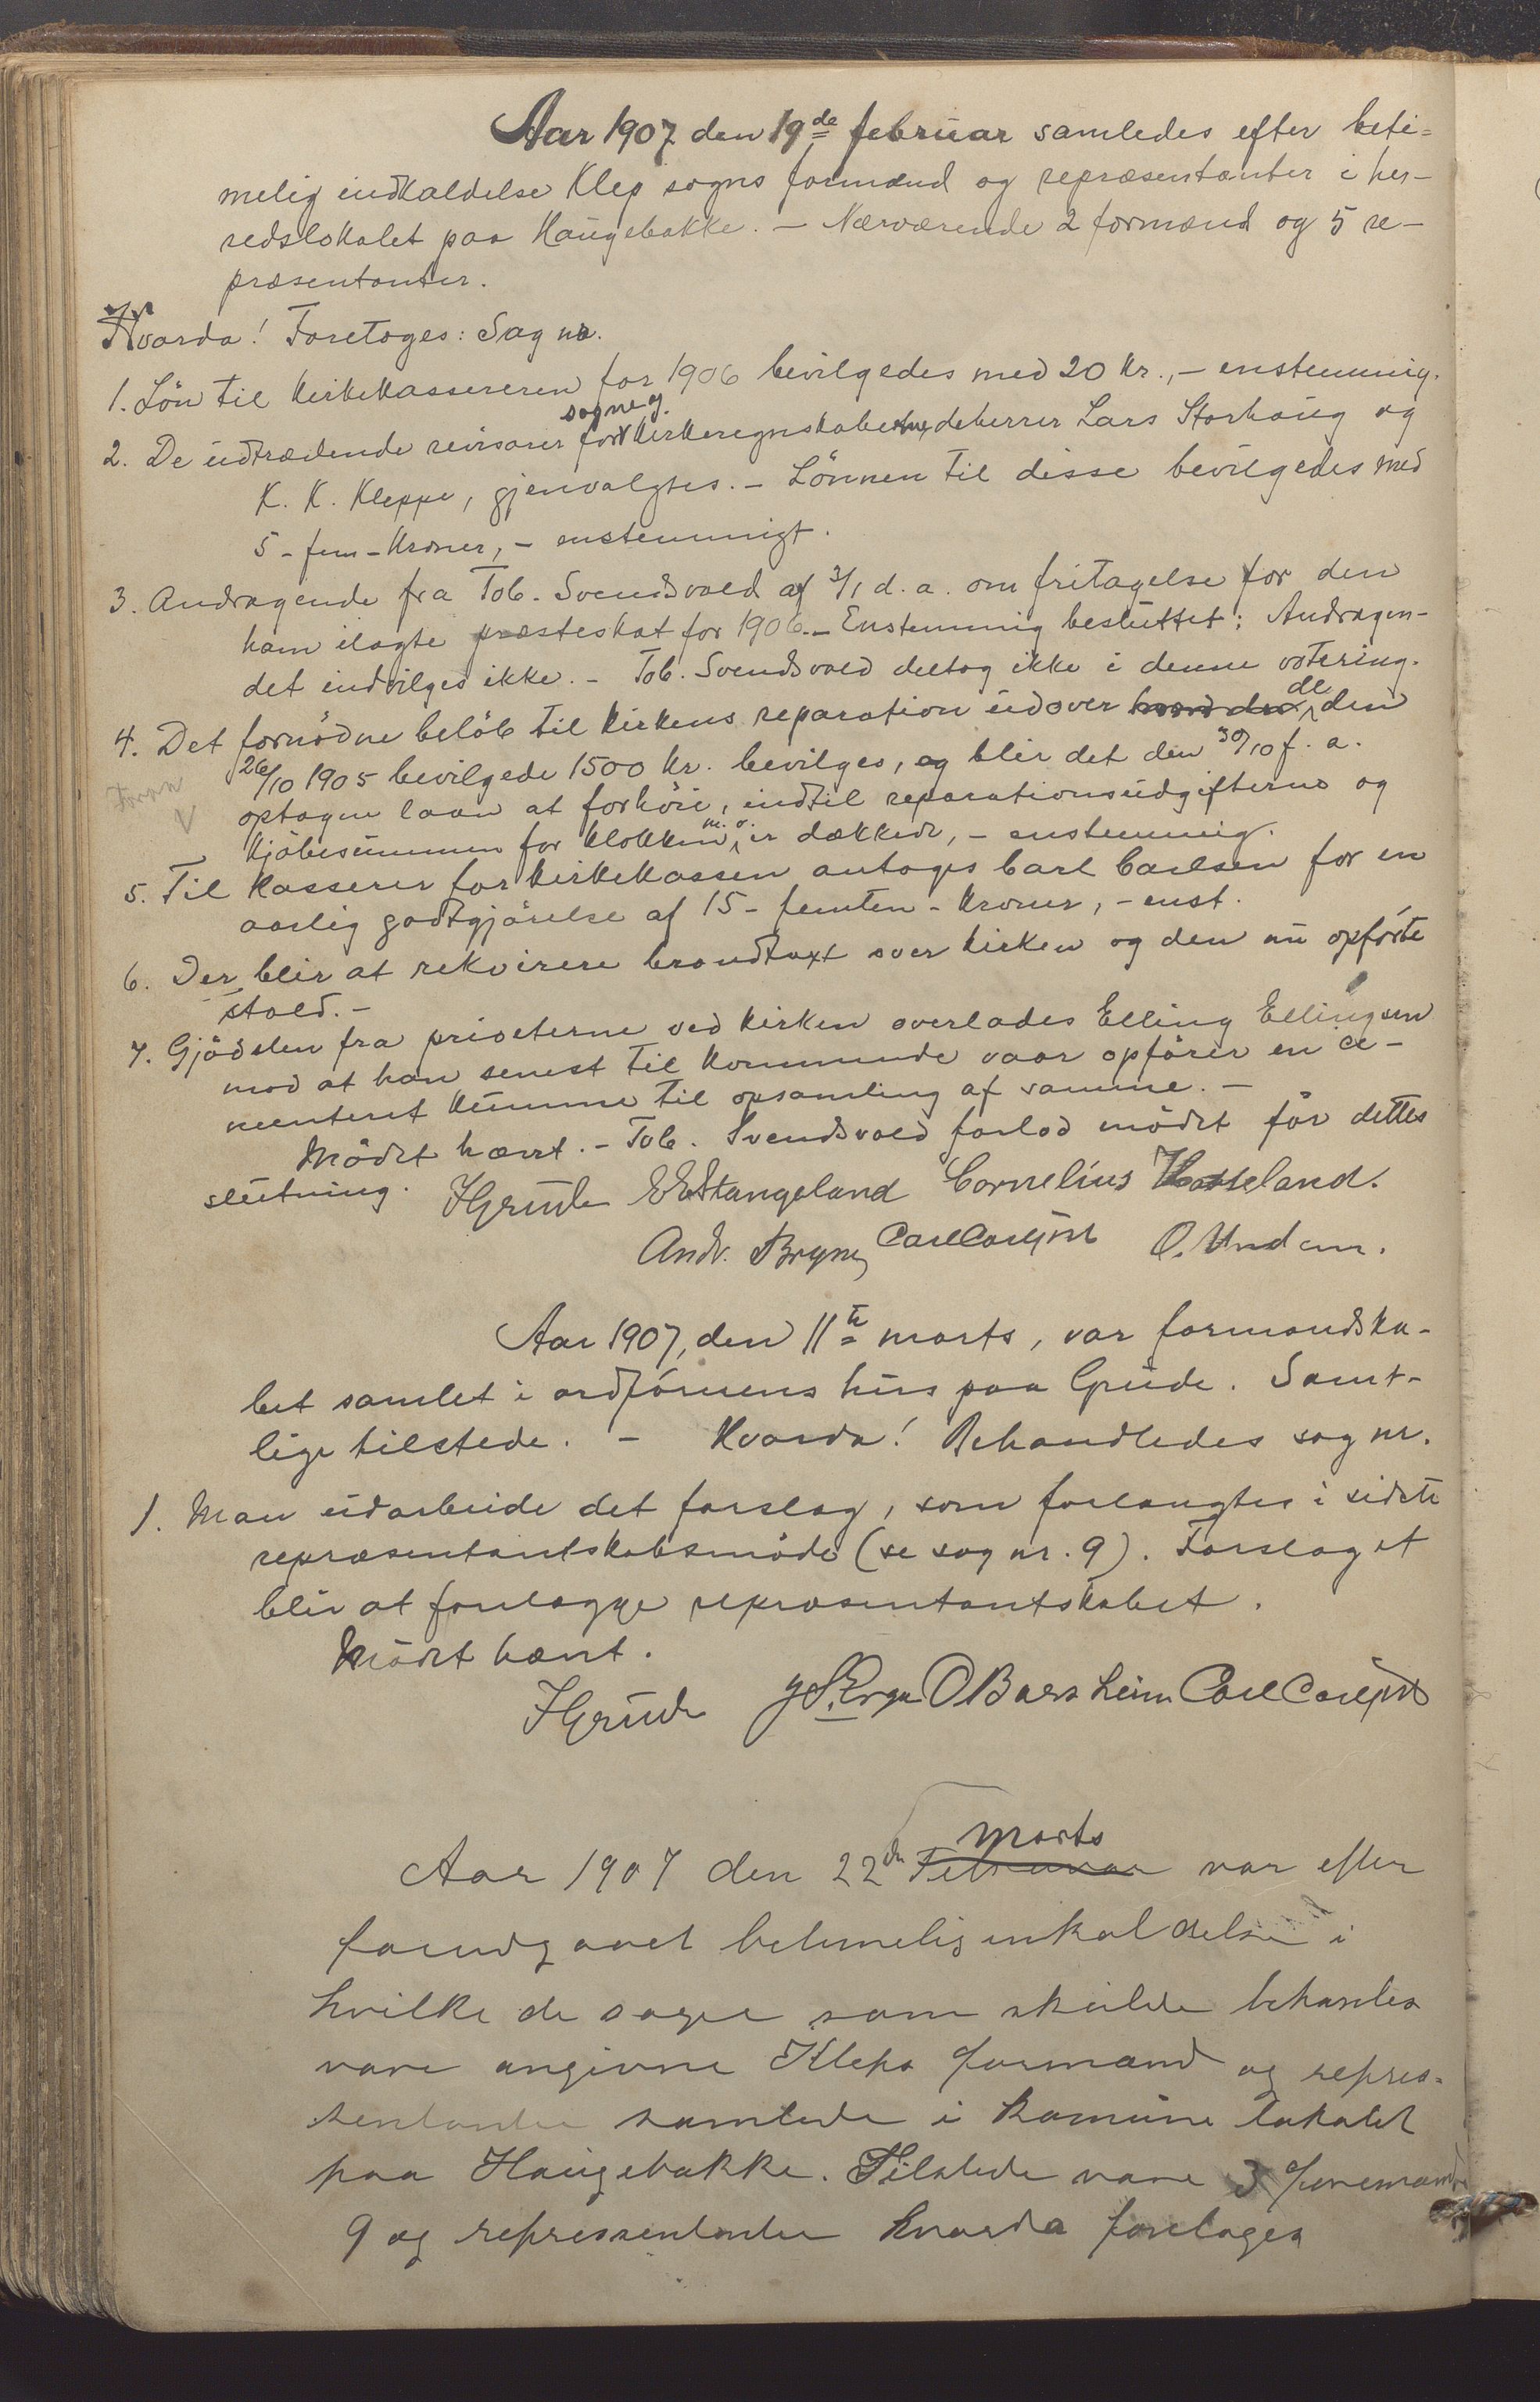 Aar 1907 den 19de februar samledes efter beti=
melig indkaldelse Klep sogns formænd og repræsentanter i her-
redslokalet paa Haugebakke. – Nærværende 2 formænd og 5 re-
præsentanter.
Hvorda! Foretoges: Sag nr.
1. Lön til kirkekassereren for 1906 bevilgedes med 20 kr., – enstemmig.
2. De udtrædende revisorer for sogne og kirkeregnskaberne, deherrer Lars Storhaug og
K. K. Kleppe, gjenvalgtes. – Lönnen til disse bevilgedes med
5 - fem - kroner, – enstemmigt.
3. Andragende fra Tob. Svendsvold af 3/1 d. a. om fritagelse for den
ham ilagte præsteskat for 1906. – Enstemmig besluttet: Andragen-
det indvilges ikke. – Tob. Svendsvold deltog ikke i denne votering.
4. Det fornödne belöb til kirkens reparation udover hvad der de den
26/10 1905 bevilgede 1500 kr. bevilges, og blir det den 30/10 f. a.
optagne laan at forhöie, indtil reparationsudgifterne og
kjöbesummen for klokken m. v. er dækkede, – enstemmig.
5. Til kasserer for kirkekassen antoges Carl Carlsen for en
aarlig godtgjörelse af 15 - femten - kroner, – enst.
6. Der blir at rekvirere brandtaxt over kirken og den nu opförte
stald. –
7. Gjödslen fra priveterne ved kirken overlades Elling Ellingsen
mod at han senest til kommende vaar opförer en ce-
menteret kumme til opsamling af samme. –
Mödet hævt. – Tob. Svendsvold forlod mödet för dettes
slutning. JGrude EEStangeland Cornelius Hasseland.
Andr. Bryne Carl Carlsen O. Undem.
Aar 1907, den 11te marts, var formandska-
bet samlet i ordförerens hus paa Grude. Samt-
lige tilstede. – Hvorda! Behandledes sag nr.
1. Man udarbeide det forslag, som forlangtes i sidste
repræsentantskabsmöde (se sag nr. 9). Forslaget
blir at forelægge repræsentantskabet.
Mödet hævt.
JGrude O Borsheim Carl Carlsen
Marts
Aar 1907 den 22de Februar var efter
forudgaaet betimelig inkaldelse i
hvilke de sager som skulde behandles
vare angivne Kleps formænd og repres-
sentanter samlede i komune lokalet
paa Haugebakke. Tilstede vare 3 formænd
9 og repressentanter hvorda foretages